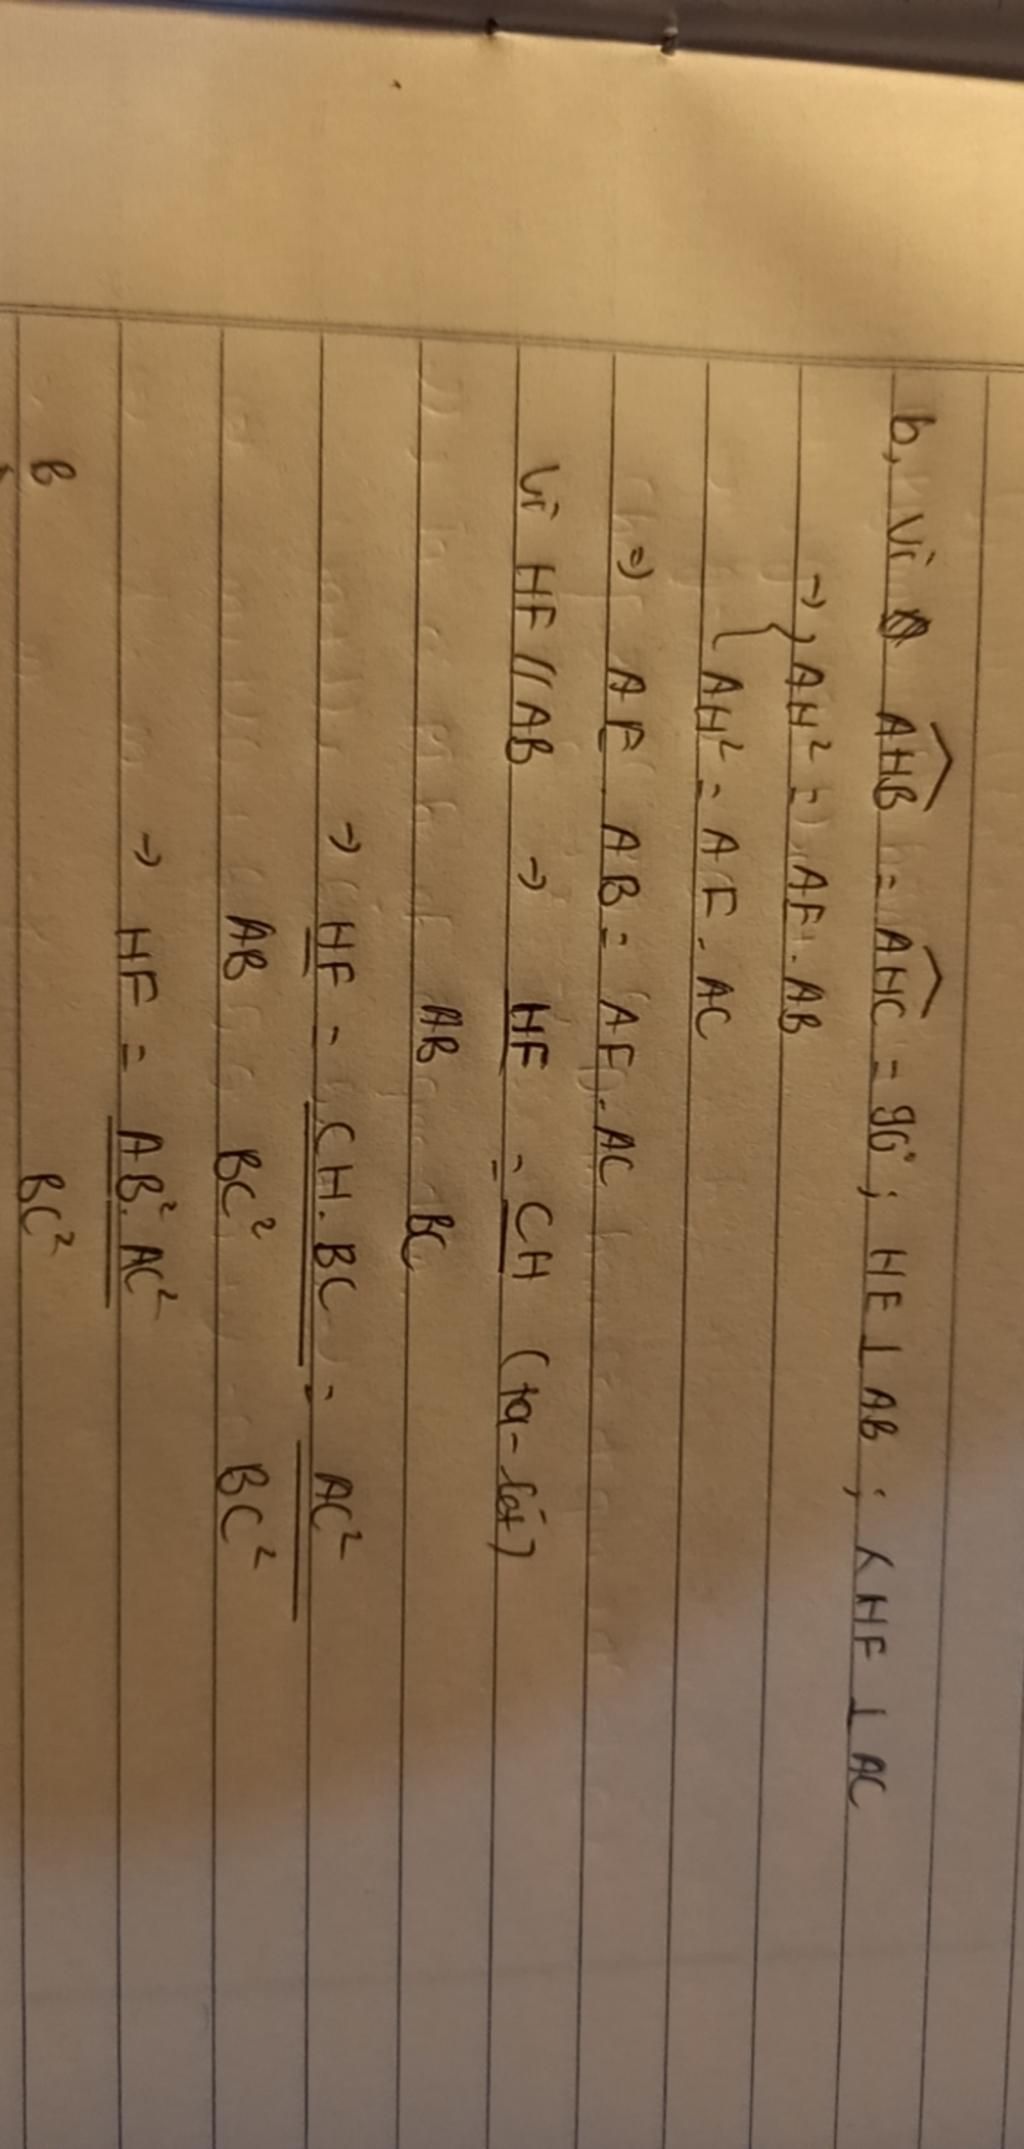 b, Vì AHB = AHC = 90°; HE ⊥ AB; HF ⊥ AC
→ { AH² = AE . AB
AH² = AF . AC
⇒ AE . AB = AF . AC
Vì HF // AB → HF = CH (ta-lét)
AB BC
→ HF = CH. BC = AC²
AB BC² BC²
→ HF = AB². AC²
BC²
B